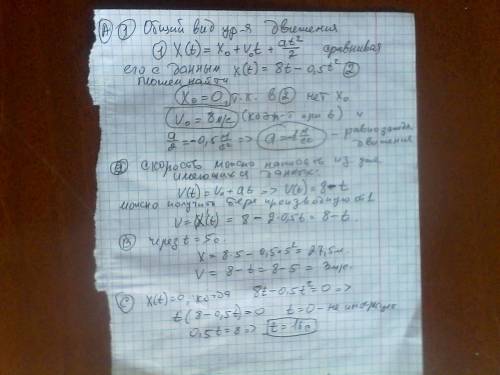 А) 1) Общий вид ур-я движения
① X(t) = X₀ + v₀t + at²/2 сравнивая
его с данным X(t) = 8t - 0,5t² ②
можем найти
X₀ = 0, т.к. в ② нет X₀
V₀ = 8 м/с (коэф-т при t) и
a/2 = -0,5 м/с² => a = -1 м/с² - равнозамедл
движения
скорость можно написать из уже
имеющихся данных:
V(t) = V₀ + at => V(t) = 8 - t
можно получить беря производную от 1
V = X(t) = 8 - 2·0,5t = 8 - t.
В) через t = 5с
X = 8·5 - 0,5·5² = 27,5 м.
V = 8 - t = 8 - 5 = 3 м/с.
С) X(t) = 0, когда 8t - 0,5t² = 0 =>
t(8 - 0,5t) = 0 t = 0 - не интересует
0,5t = 8 => t = 16с